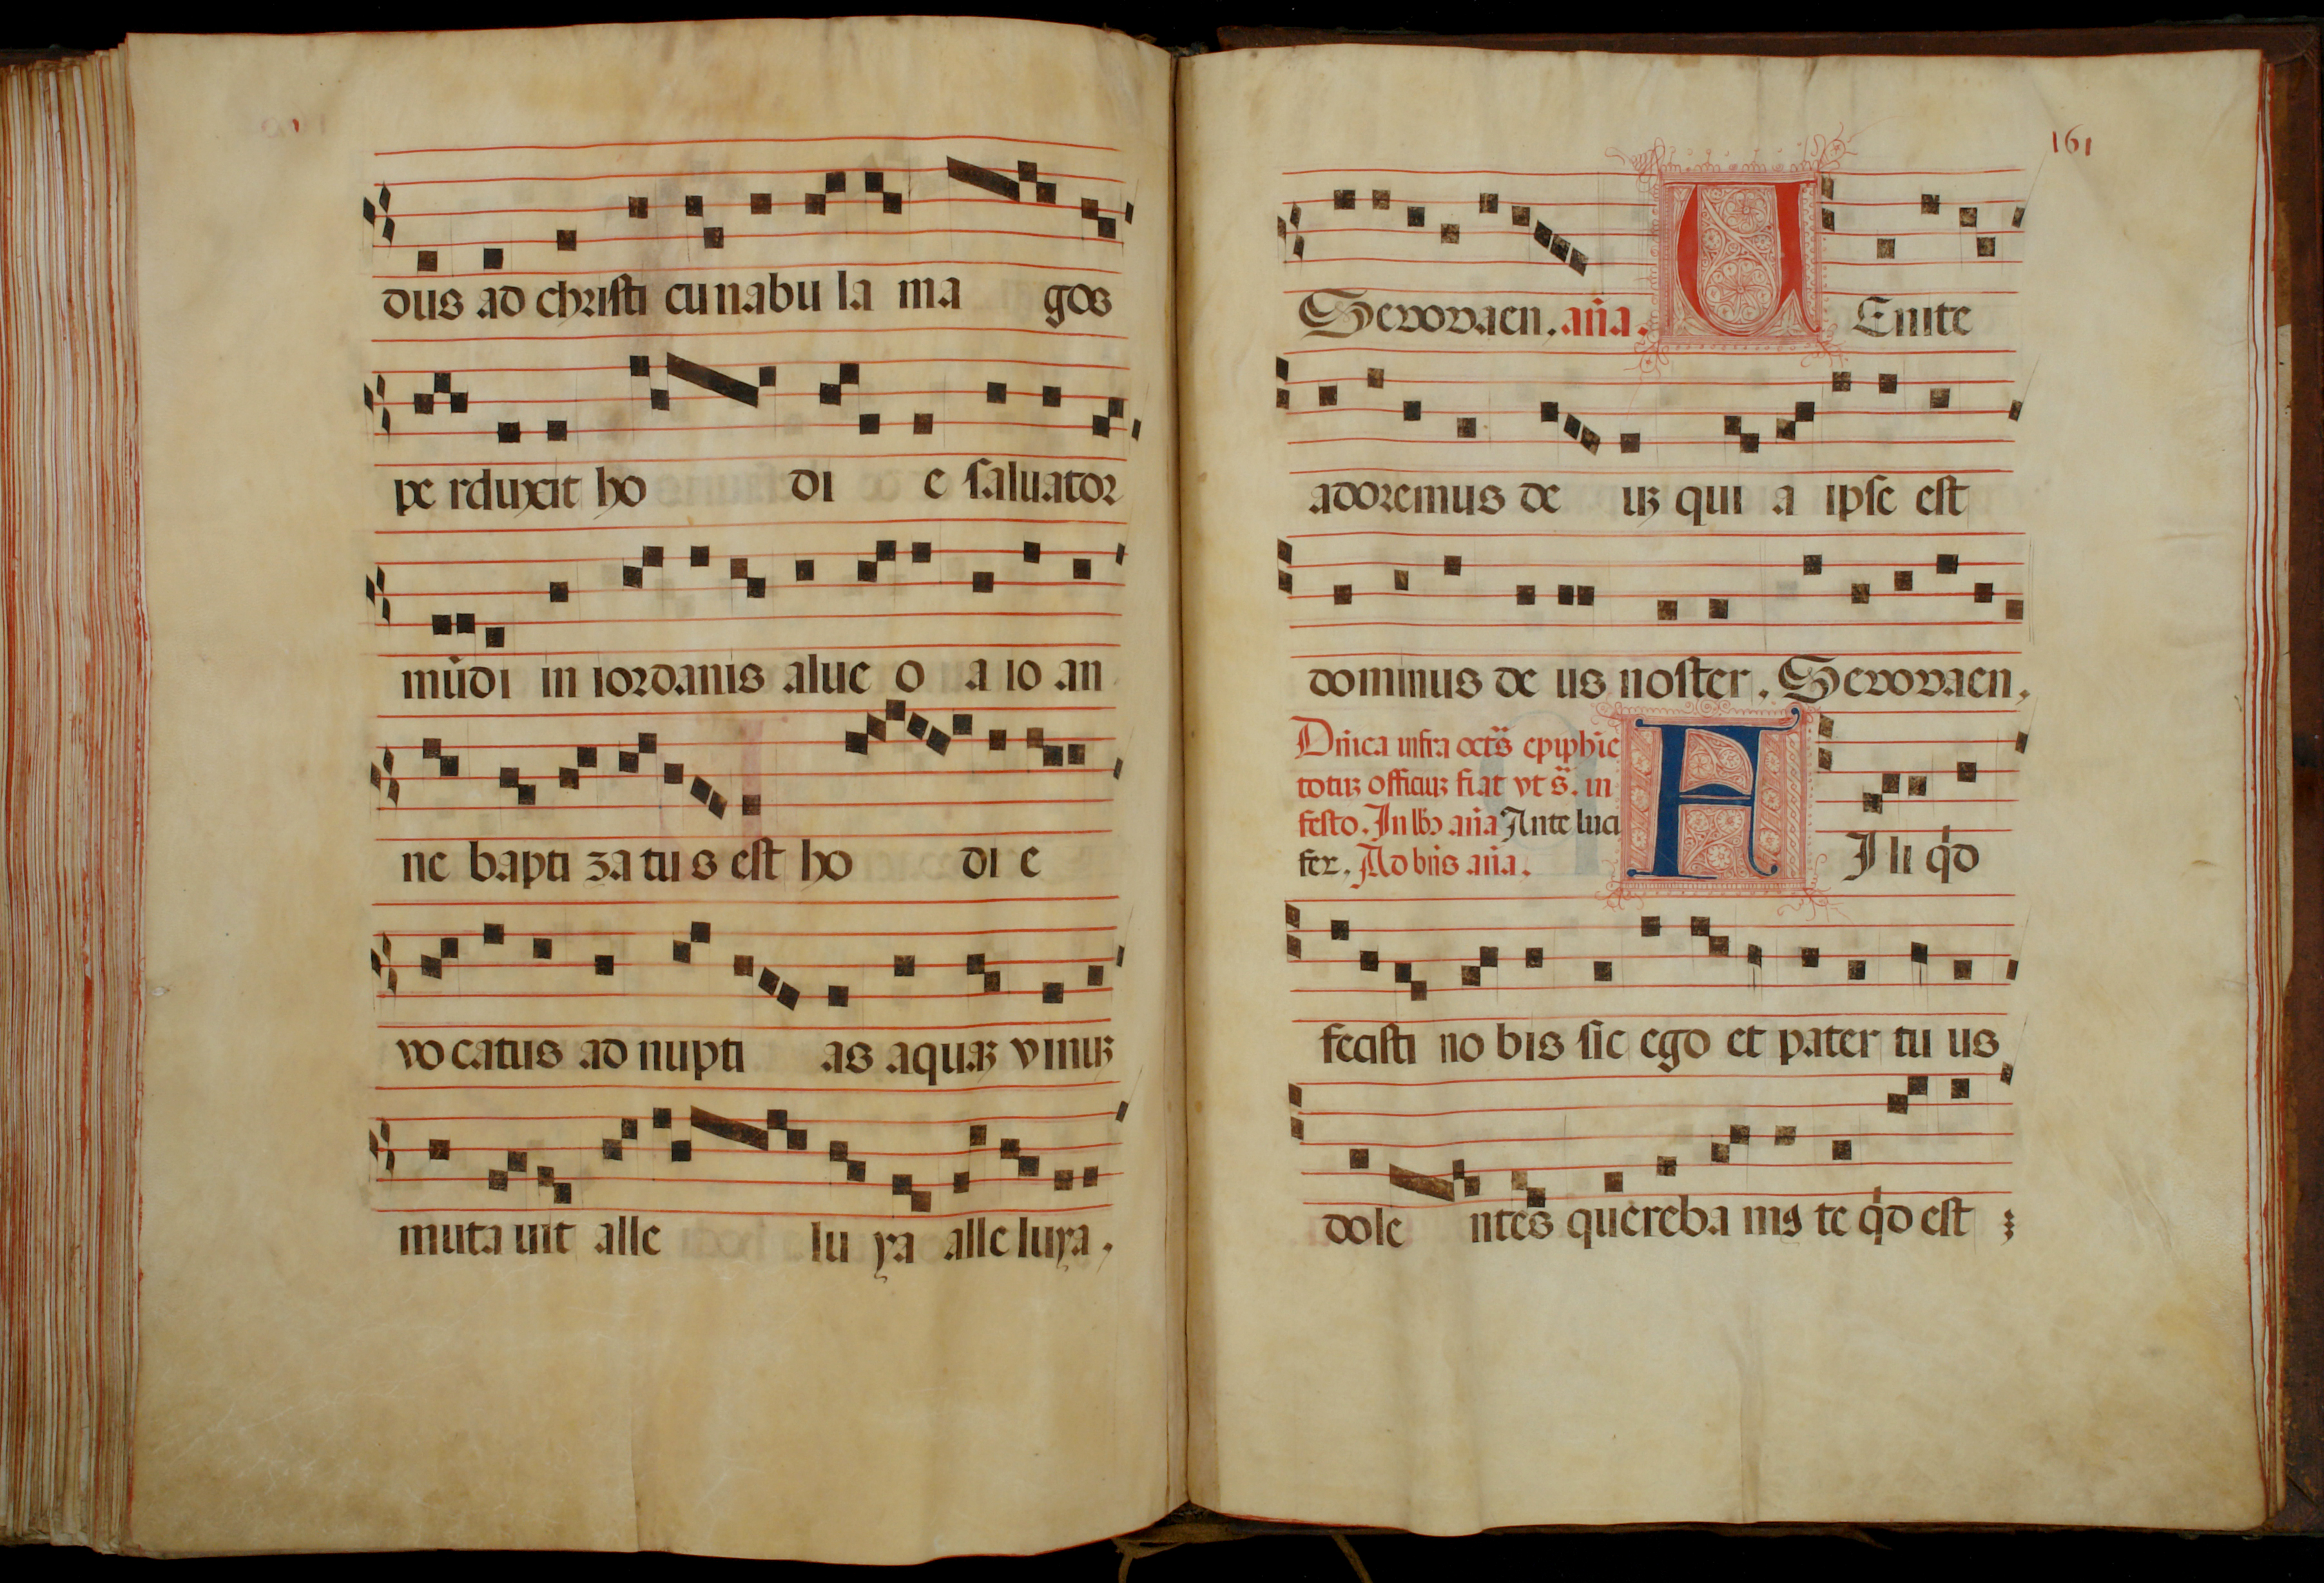 dus ad christi cunabu la ma gos
pe rduxit ho di e saluator
mūdi in iordanis alue o a io an
ne bapti za tu s est ho di e
vo catus ad nupti as aquaꝫ vinuꝫ
muta uit alle lu ya alle luya.
161
Seuouaen. an̄a. U Enite
adoremus de uꝫ qui a ipse est
dominus de us noster. Seuouaen.
Dn̄ica infra octs̄ epiphīe
totuꝫ officiuꝫ fiat vt s̄. in
festo. In an̄a Ante luci
fer. Ad bn̄s an̄a. F I li qd̓
fecisti no bis sic ego et pater tu us
dole ntes quereba mꝰ te qd̓ est